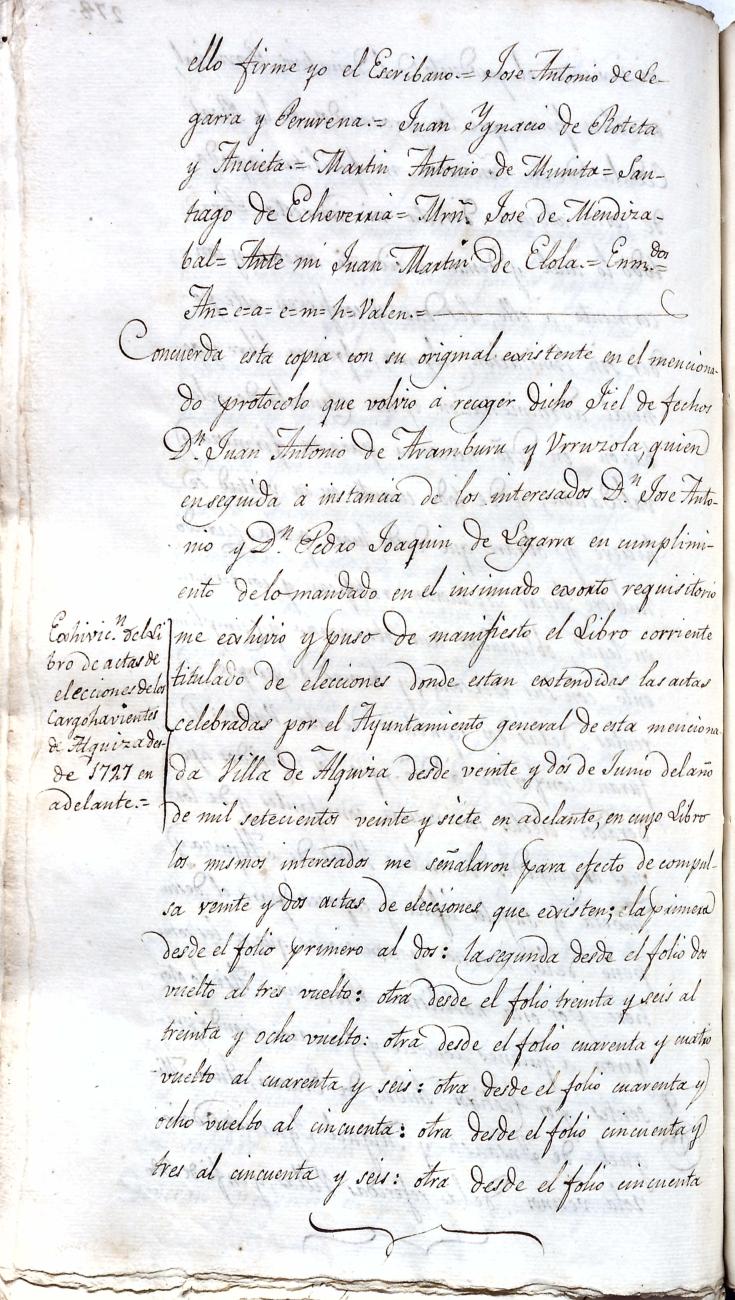 ello firme yo el Escribano.= Jose Antonio de Le-
garra y Perurena.= Juan Ygnacio de Roteta
y Ancieta.= Martin Antonio de Munita= San-
tiago de Echeverria= Mrñ. Jose de Mendiza-
bal= Ante mi Juan Martin de Elola.= Enm.dos=
An= e=a= e=m= h= Valen.=
Concuerda esta copia con su original existente en el menciona-
do protocolo que volvio á recoger dicho Fiel de fechos
D.n Juan Antonio de Aramburu y Urruzola, quien
enseguida á instancia de los interesados D.n Jose Anto-
nio y D.n Pedro Joaquin de Legarra en cumplimi-
ento delo mandado en el insinuado exorto requisitorio
me exhivio y puso de manifiesto el Libro corriente
titulado de elecciones donde estan extendidas las actas
celebradas por el Ayuntamiento general de esta menciona-
da Villa de Alquiza desde veinte y dos de Junio del año
de mil setecientos veinte y siete en adelante, en cuyo Libro
los mismos interesados me señalaron para efecto de compul-
sa veinte y dos actas de elecciones que existen; la primera
desde el folio primero al dos: la segunda desde el folio dos
vuelto al tres vuelto: otra desde el folio treinta y seis al
treinta y ocho vuelto: otra desde el folio cuarenta y cuatro
vuelto al cuarenta y seis: otra desde el folio cuarenta y
ocho vuelto al cincuenta: otra desde el folio cincuenta y
tres al cincuenta y seis: otra desde el folio cincuenta
Exhivic.n del Li
bro de actas de
elecciones de los
Cargohavientes
de Alquiza des-
de 1727 en
adelante.=